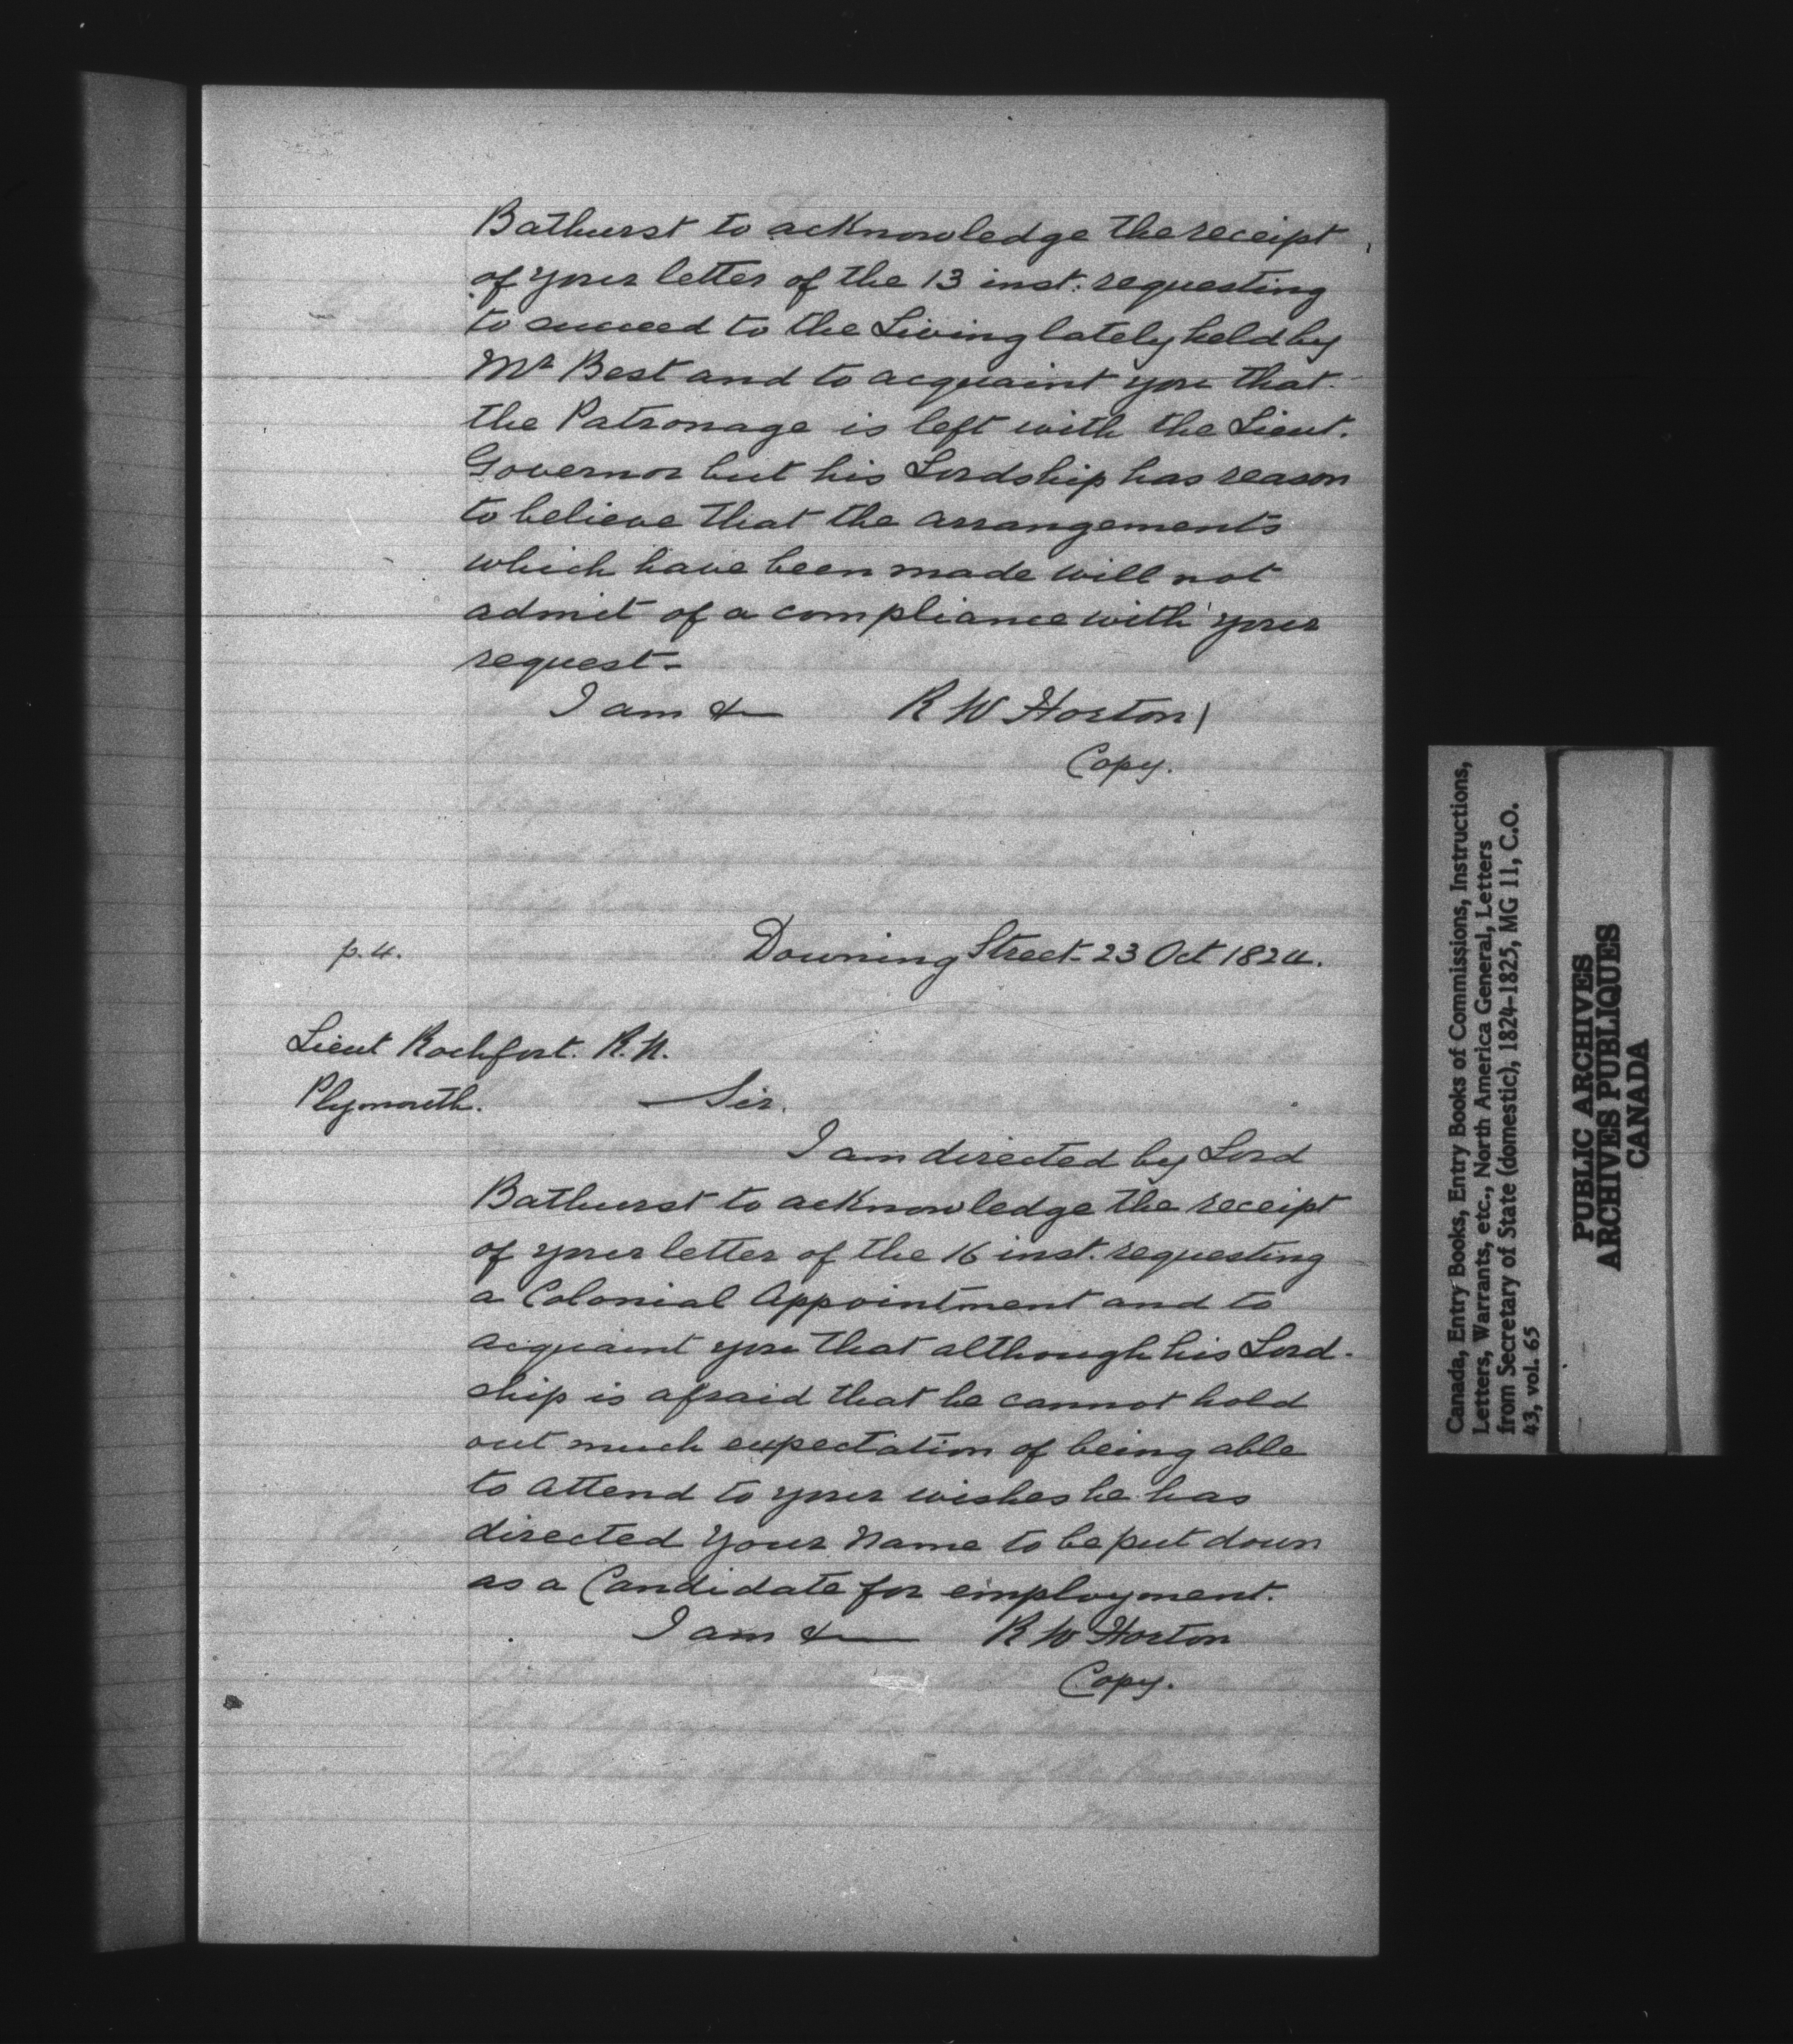 Bathurst to acknowledge the receipt
of your letter of the 13 inst: requesting
to succeed to the Living lately held by
Mr Best and to acquaint you that
the Patronage is left with the Lieut.
Governor but his Lordship has reason
to believe that the arrangements
which have been made will not
admit of a compliance with your
request.
I am &
R W Horton
Copy.
p. 4.
Downing Street 23 Oct 1824.
Lieut Rochfort. R.N.
Plymouth.
Sir.
I am directed by Lord
Bathurst to acknowledge the receipt
of your letter of the 16 inst. requesting
a Colonial Appointment and to
acquaint you that although his Lord-
ship is afraid that he cannot hold
out much expectation of being able
to attend to your wishes he has
directed Your Name to be put down
as a Candidate for employment.
I am &
R W Horton
Copy.
Canada, Entry Books, Entry Books of Commissions, Instructions,
Letters, Warrants, etc., North America General, Letters
from Secretary of State (domestic), 1824-1825, MG 11, C.O.
43, vol. 65
PUBLIC ARCHIVES
ARCHIVES PUBLIQUES
CANADA